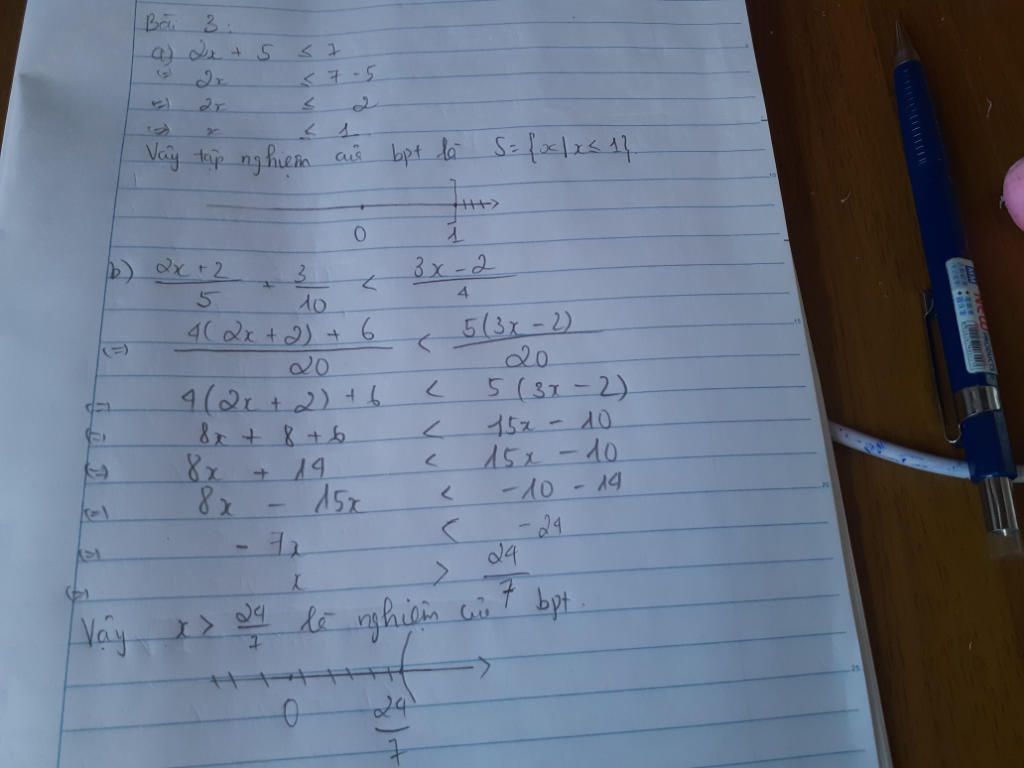 Bài 3:
a) 2x + 5 ≤ 7
(=) 2x ≤ 7 - 5
(=) 2x ≤ 2
(=) x ≤ 1
Vậy tập nghiệm của bpt là S = {x | x ≤ 1}
0 1
b) (2x + 2)/5 + 3/10 < (3x - 2)/4
(=) (4(2x + 2) + 6)/20 < 5(3x - 2)/20
(=) 4(2x + 2) + 6 < 5(3x - 2)
(=) 8x + 8 + 6 < 15x - 10
(=) 8x + 14 < 15x - 10
(=) 8x - 15x < -10 - 14
(=) - 7x < - 24
(=) x > 24/7
Vậy x > 24/7 là nghiệm của bpt.
0 24/7